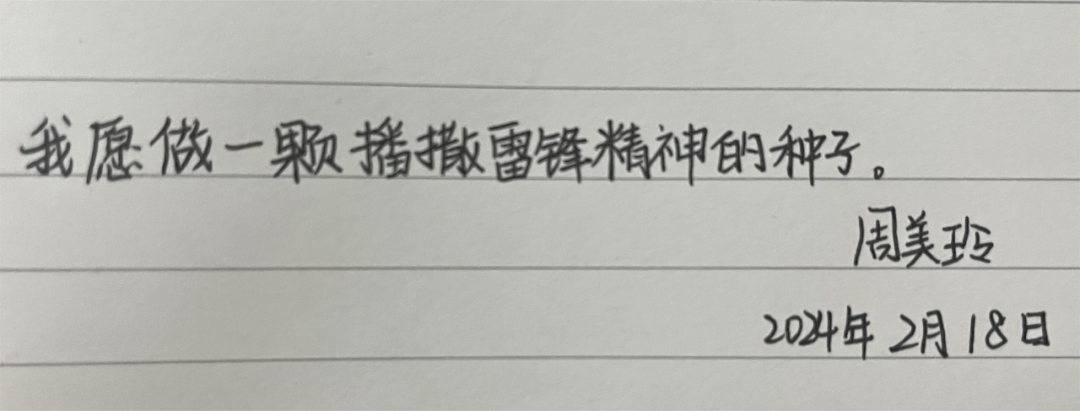 我愿做一颗播撒雷锋精神的种子。
周美玲
2024年2月18日